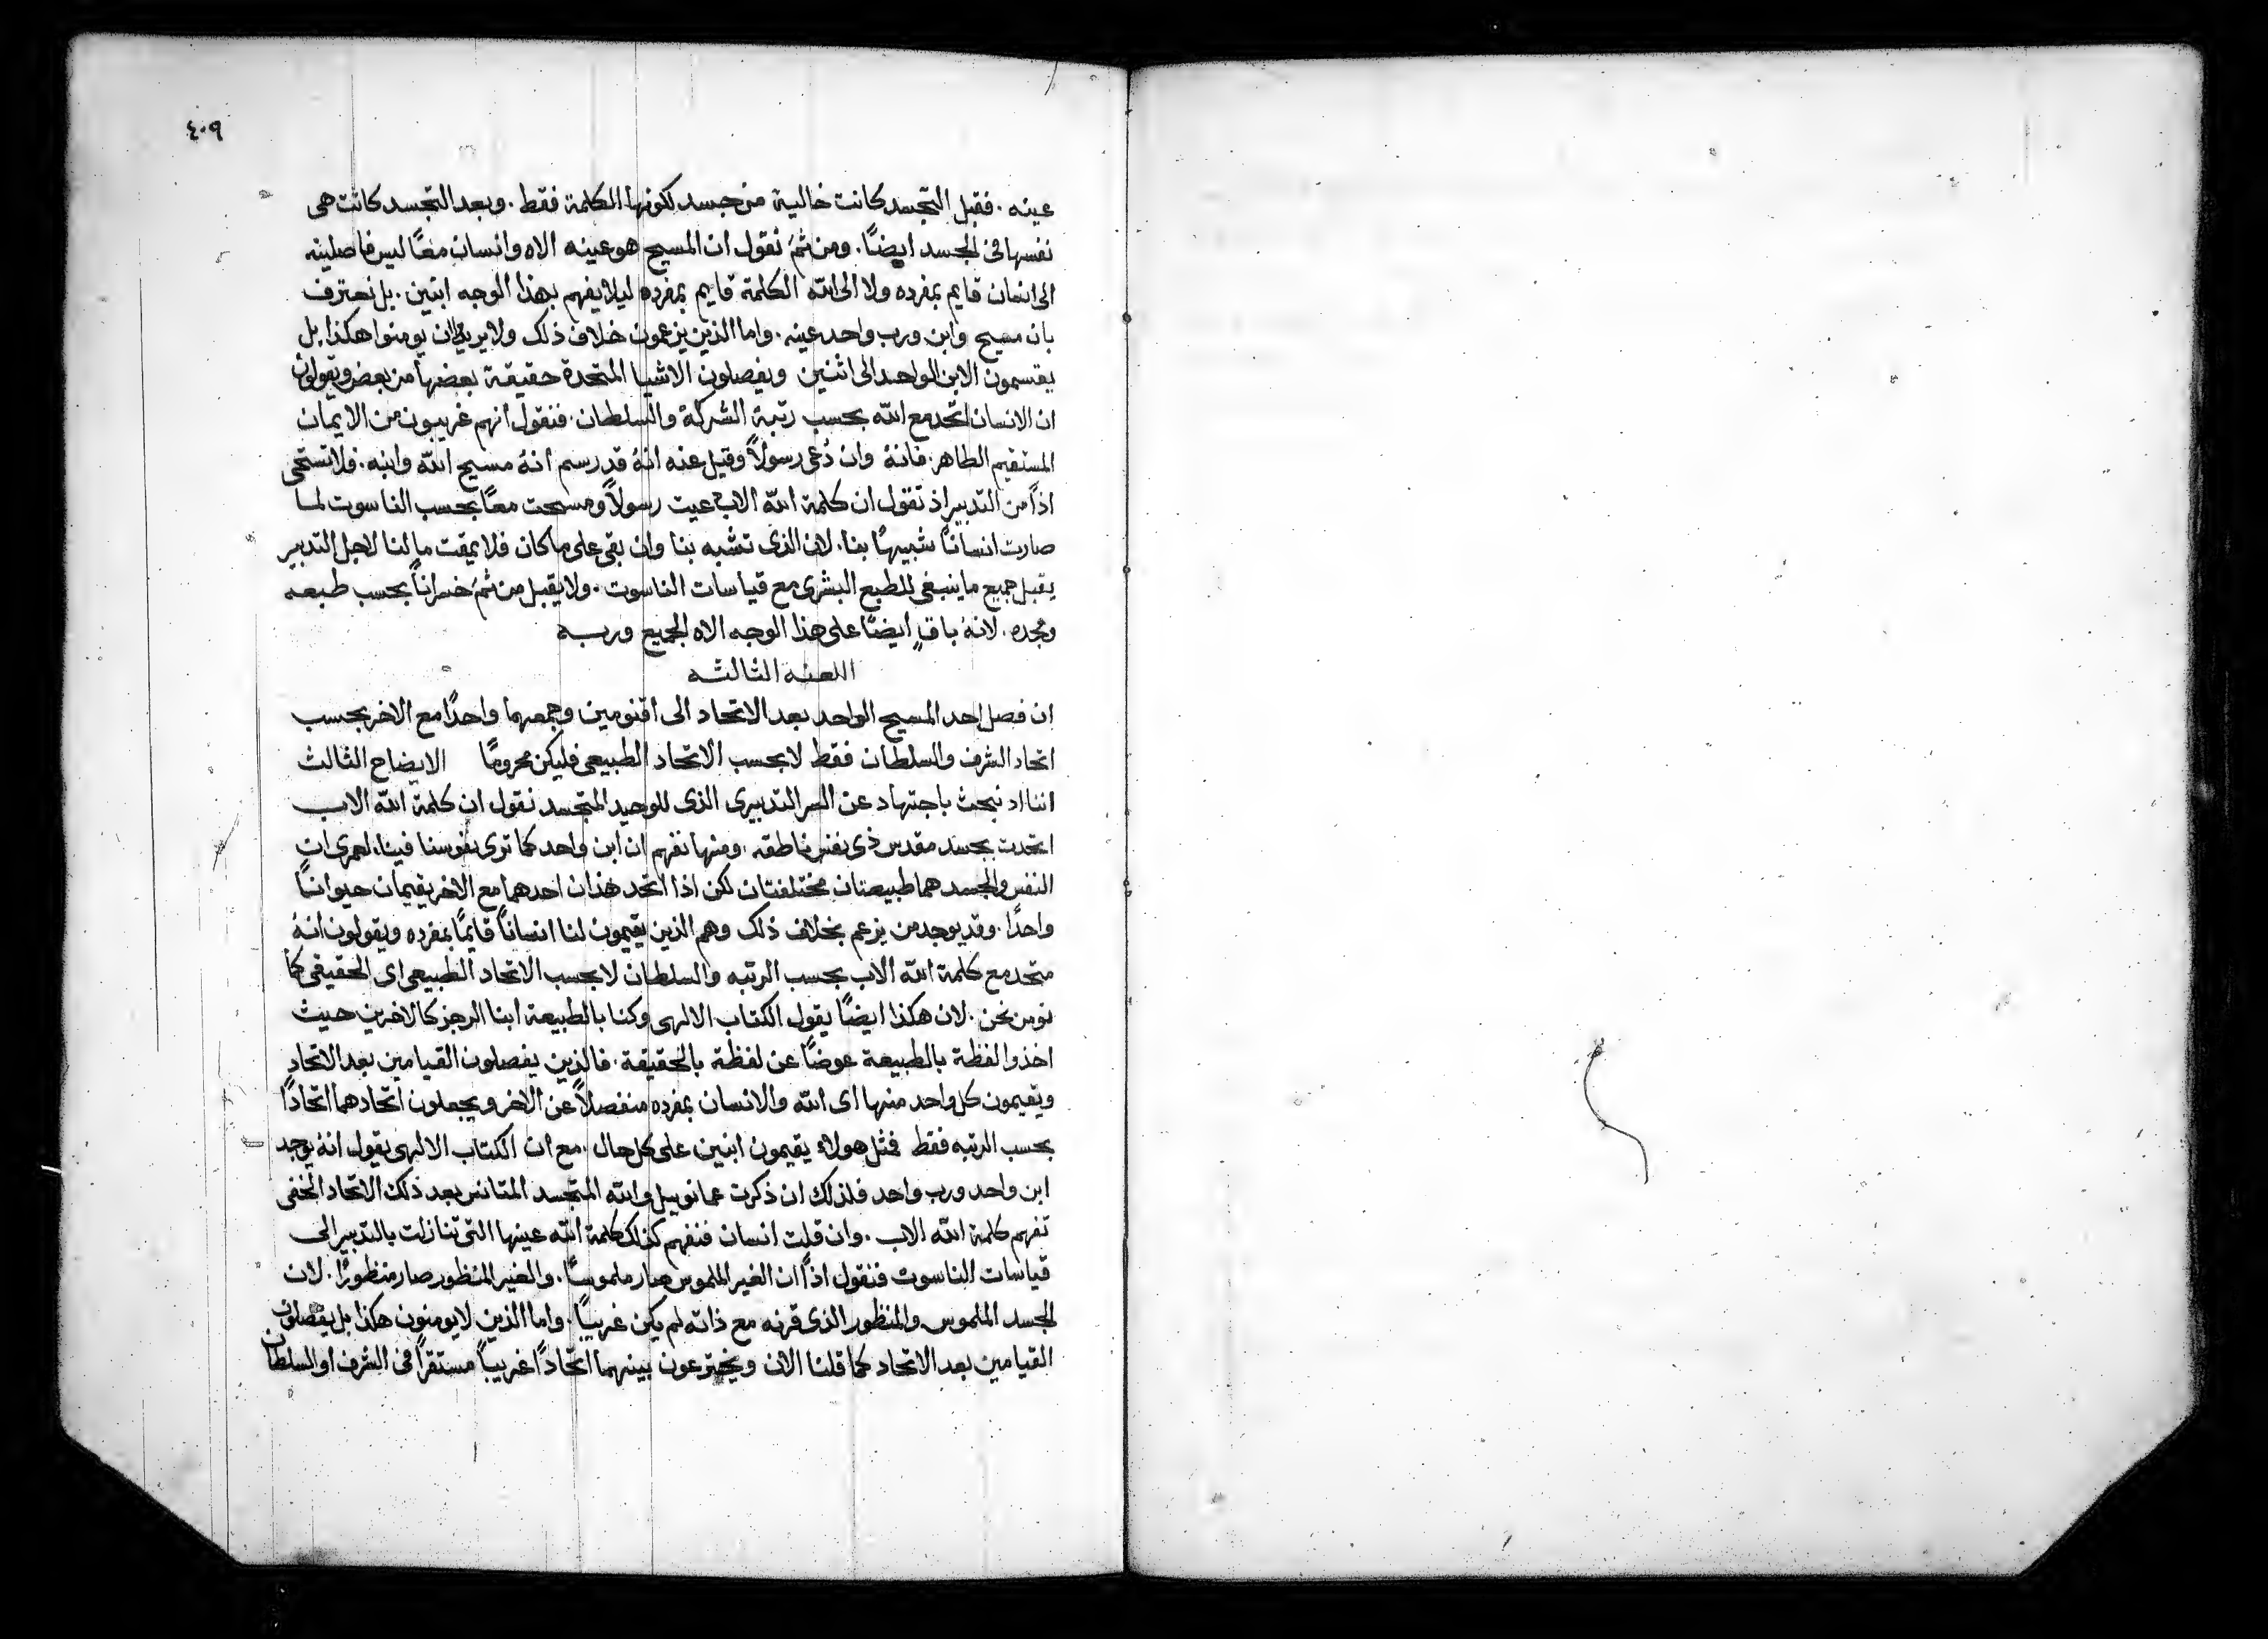 ٤٠٩
عينه . فقبل التجسد كانت خالية من جسد لكونها الكلمة فقط . وبعد التجسد كانت هى
نفسها فى الجسد ايضًا . ومن ثمَ نقول ان المسيح هو عينه الاه وانسان معًا ليس فاصلينه
الى انسان قايم بمفرده ولا الى الله الكلمة قايم بمفرده ليلا يفهم بهذا الوجه ابنين . بل نعترف
بان مسيح وابن ورب واحد عينه . واما الذين يزعمون خلاف ذلك ولا يريدون ان يومنوا هكذا بل
يقسمون الابن الواحد الى اثنين ويفصلون الاشيا المتحدة حقيقة بعضها من بعض ويقولون
ان الانسان اتحد مع الله بحسب رتبة الشركة والسلطان . فنقول انهم غريبون من الايمان
المستقيم الطاهر . فانهُ وان دُعى رسولاً وقيل عنه انهُ قد رسم انهُ مسيح الله وابنه . فلا تستحى
اذاً من التدبير اذ تقول ان كلمة الله الاب دعيت رسولاً ومسحت معًا بحسب الناسوت لما
صارت انسانًا شبيهًا بنا . لان الذى تشبه بنا وان بقى على ما كان فلا يمقت ما لنا لاجل التدبير
يقبل جميع ما ينبغى للطبع البشرى مع قياسات الناسوت . ولا يقبل من ثمَ خسرانًا بحسب طبعه
ومجده . لانهُ باقٍ ايضًا على هذا الوجه الاه الجميع وربه
اللعنه الثالثه
ان فصل احد المسيح الواحد بعد الاتحاد الى اقنومين وجمعهما واحدًا مع الاخر بحسب
اتحاد الشرف والسلطان فقط لا بحسب الاتحاد الطبيعى فليكن محرومًا الايضاح الثالث
اننا اذ نبحث باجتهاد عن السر التدبيرى الذى للوحيد المتجسد نقول ان كلمة الله الاب
اتحدت بجسد مقدس ذى نفس ناطقه . ومنها نفهم ان ابن واحد كما ترى نفوسنا فينا . لعمرى ان
النفس والجسد هما طبيعتان مختلفتان لكن اذا اتحد هذان احدهما مع الاخر يقيمان حيوانًا
واحدًا . وقد يوجد من يزعم بخلاف ذلك وهم الذين يقيمون لنا انسانًا قايمًا بمفرده ويقولون انهُ
متحد مع كلمة الله الاب بحسب الرتبه والسلطان لا بحسب الاتحاد الطبيعى اى الحقيقى كما
نومن نحن . لان هكذا ايضًا يقول الكتاب الالهى وكنا بالطبيعة ابنا الرجز كالاخرين حيث
اخذوا لفظة بالطبيعة عوضًا عن لفظة بالحقيقة . فالذين يفصلون القيامين بعد الاتحاد
ويقيمون كل واحد منها اى الله والانسان بمفرده منفصلاً عن الاخر ويجعلون اتحادهما اتحادًا
بحسب الرتبه فقط فمثل هولاء يقيمون ابنين على كل حال . مع ان الكتاب الالهى يقول انهُ يوجد
ابن واحد ورب واحد فلذلك ان ذكرت عمانوييل والله المتجسد المتانس بعد ذلك الاتحاد الخفى
تفهم كلمة الله الاب . وان قلت انسان فنفهم كذلك كلمة الله عينها التى تنازلت بالتدبير الى
قياسات الناسوت فنقول اذاً ان الغير الملموس صار ملموسًا . والغير المنظور صار منظورًا . لان
الجسد الملموس والمنظور الذى قرنه مع ذاته لم يكن غريبًا . واما الذين لا يومنون هكذا بل يفصلون
القيامين بعد الاتحاد كما قلنا الان ويخترعون بينهما اتحادًا غريبًا مستقرًا فى الشرف او السلطان